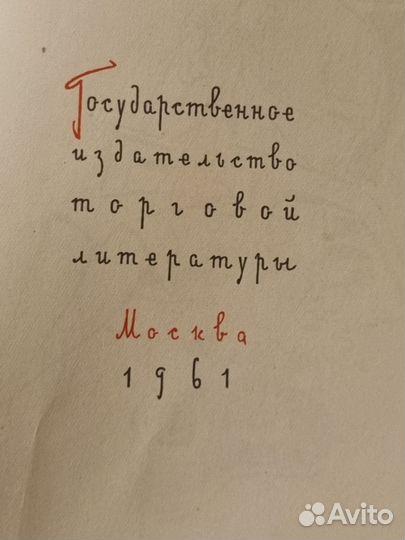 Государственное
издательство
торговой
литературы
Москва
1961
Avito